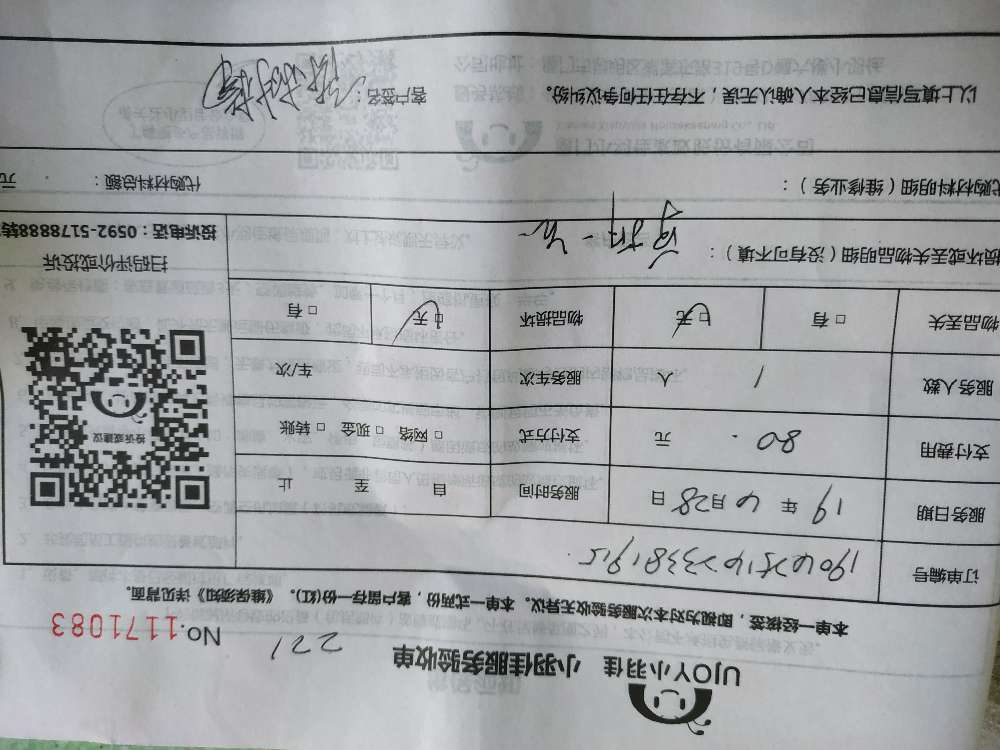 UJOY小羽佳 小羽佳服务验收单
221
No.1171083
本单一经核签，即视为对本次服务验收无异议。本单一式两份，客户留存一份(红)。《维保须知》详见背面。
订单编号
服务日期 19年4月28日 服务时间 自 至 止
支付费用 80. 元 支付方式 □ 网络 □ 现金 □ 转账
服务人数 1 人 服务车次 车/次
物品丢失 □ 有 □ 无 物品损坏 □ 无 □ 有
投诉或建议
扫码评价或投诉
投诉电话：0592-5178888转
损坏或丢失物品明细（没有可不填）：
代购材料明细（维修业务）： 代购材料总额： 元
以上填写信息已经本人确认无误，不存在任何争议纠纷。 客户签名：